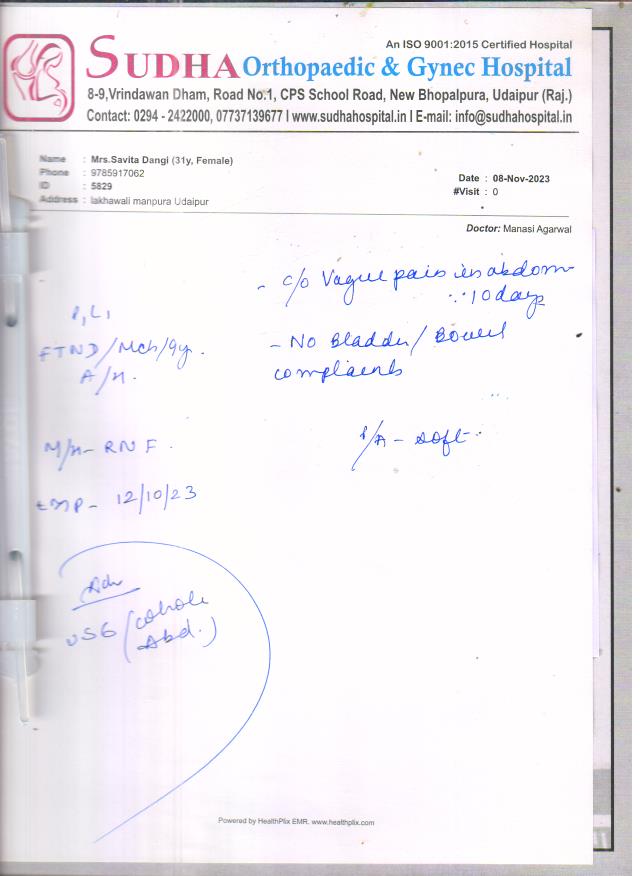 An ISO 9001:2015 Certified Hospital
SUDHA Orthopaedic & Gynec Hospital
8-9,Vrindawan Dham, Road No.1, CPS School Road, New Bhopalpura, Udaipur (Raj.)
Contact: 0294 - 2422000, 07737139677 I www.sudhahospital.in I E-mail: info@sudhahospital.in
Name : Mrs.Savita Dangi (31y, Female)
Phone : 9785917062
ID : 5829
Address : lakhawali manpura Udaipur
Date : 08-Nov-2023
#Visit : 0
Doctor: Manasi Agarwal
- c/o Vague pain in abdom
10 days
- No Bladder / Bowel
complaints
P1L1
FTND/Mch/9y.
A/H.
P/A - soft
M/H - RNF.
LMP - 12/10/23
Adv
USG (whole
Abd.)
Powered by HealthPlix EMR. www.healthplix.com